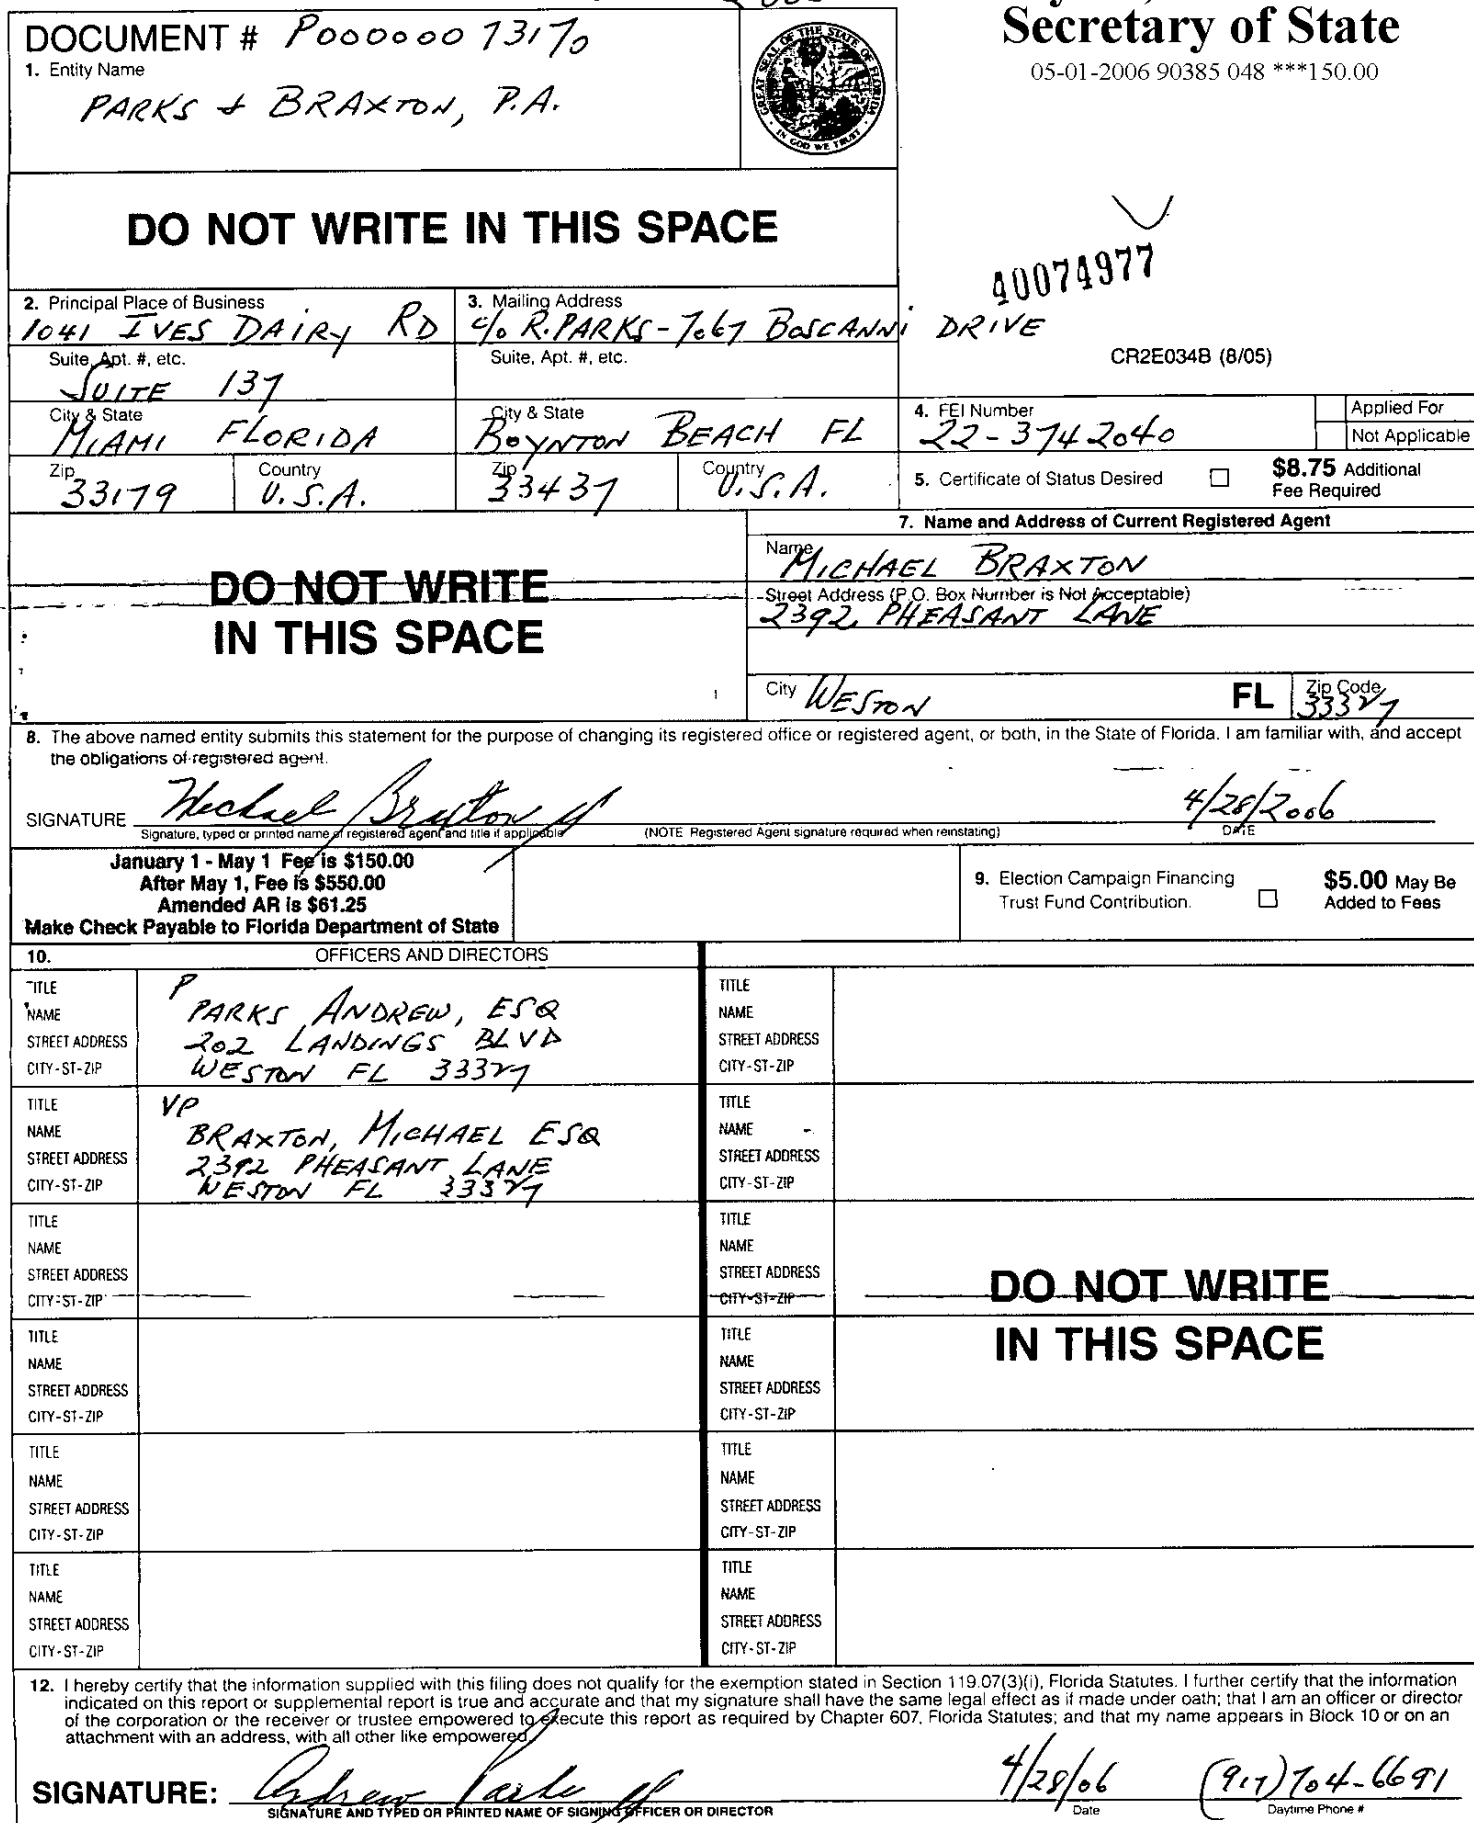 Secretary of State
05-01-2006 90385 048 ***150.00
DOCUMENT # P00000073170
1. Entity Name
PARKS & BRAXTON, P.A.
GREAT SEAL OF THE STATE OF FLORIDA
IN GOD WE TRUST
DO NOT WRITE IN THIS SPACE
40074977
2. Principal Place of Business
1041 IVES DAIRY RD
3. Mailing Address
c/o R. PARKS - 7067 BOSCANNI DRIVE
Suite, Apt. #, etc.
SUITE 137
Suite, Apt. #, etc.
CR2E034B (8/05)
City & State
MIAMI FLORIDA
City & State
BOYNTON BEACH FL
4. FEI Number
22-3742040
Applied For
Not Applicable
Zip
33179
Country
U.S.A.
Zip
33437
Country
U.S.A.
5. Certificate of Status Desired
$8.75 Additional
Fee Required
7. Name and Address of Current Registered Agent
Name
MICHAEL BRAXTON
DO NOT WRITE
IN THIS SPACE
Street Address (P.O. Box Number is Not Acceptable)
2392 PHEASANT LANE
City WESTON FL
Zip Code
33327
8. The above named entity submits this statement for the purpose of changing its registered office or registered agent, or both, in the State of Florida. I am familiar with, and accept
the obligations of registered agent.
SIGNATURE Michael Braxton 4/28/2006
Signature, typed or printed name of registered agent and title if applicable (NOTE Registered Agent signature required when reinstating) DATE
January 1 - May 1 Fee is $150.00
After May 1, Fee is $550.00
Amended AR is $61.25
Make Check Payable to Florida Department of State
9. Election Campaign Financing
Trust Fund Contribution.
$5.00 May Be
Added to Fees
10. OFFICERS AND DIRECTORS
TITLE P
NAME PARKS ANDREW, ESQ
STREET ADDRESS 202 LANDINGS BLVD
CITY-ST-ZIP WESTON FL 33327
TITLE
NAME
STREET ADDRESS
CITY-ST-ZIP
TITLE VP
NAME BRAXTON, MICHAEL ESQ
STREET ADDRESS 2392 PHEASANT LANE
CITY-ST-ZIP WESTON FL 33327
TITLE
NAME
STREET ADDRESS
CITY-ST-ZIP
TITLE
NAME
STREET ADDRESS
CITY-ST-ZIP
TITLE
NAME
STREET ADDRESS
CITY-ST-ZIP
DO NOT WRITE
IN THIS SPACE
TITLE
NAME
STREET ADDRESS
CITY-ST-ZIP
TITLE
NAME
STREET ADDRESS
CITY-ST-ZIP
TITLE
NAME
STREET ADDRESS
CITY-ST-ZIP
TITLE
NAME
STREET ADDRESS
CITY-ST-ZIP
TITLE
NAME
STREET ADDRESS
CITY-ST-ZIP
TITLE
NAME
STREET ADDRESS
CITY-ST-ZIP
12. I hereby certify that the information supplied with this filing does not qualify for the exemption stated in Section 119.07(3)(i), Florida Statutes. I further certify that the information
indicated on this report or supplemental report is true and accurate and that my signature shall have the same legal effect as if made under oath; that I am an officer or director
of the corporation or the receiver or trustee empowered to execute this report as required by Chapter 607, Florida Statutes; and that my name appears in Block 10 or on an
attachment with an address, with all other like empowered.
SIGNATURE: Andrew Parks 4/28/06 (917) 704-6691
SIGNATURE AND TYPED OR PRINTED NAME OF SIGNING OFFICER OR DIRECTOR Date Daytime Phone #